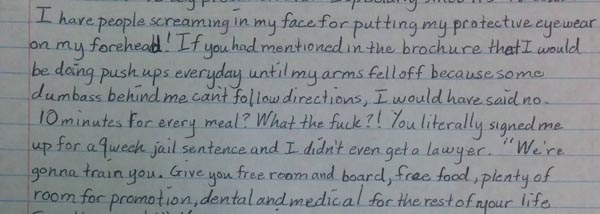 I have people screaming in my face for putting my protective eyewear
on my forehead! If you had mentioned in the brochure that I would
be doing push ups everyday until my arms fell off because some
dumbass behind me can't follow directions, I would have said no.
10 minutes for every meal? What the fuck?! You literally signed me
up for a 9 week jail sentence and I didn't even get a lawyer. "We're
gonna train you. Give you free room and board, free food, plenty of
room for promotion, dental and medical for the rest of your life